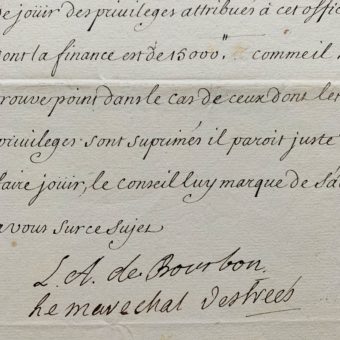 de joüir des privileges attribués à cet offic
dont la finance est de 15000.tt comme il
trouve point dans le cas de ceux dont let
privileges sont suprimés il paroit juste
faire joüir, le conseil luy marque de s'a
a vous sur ce sujet
L. A. de Bourbon
Le marechal Destrées